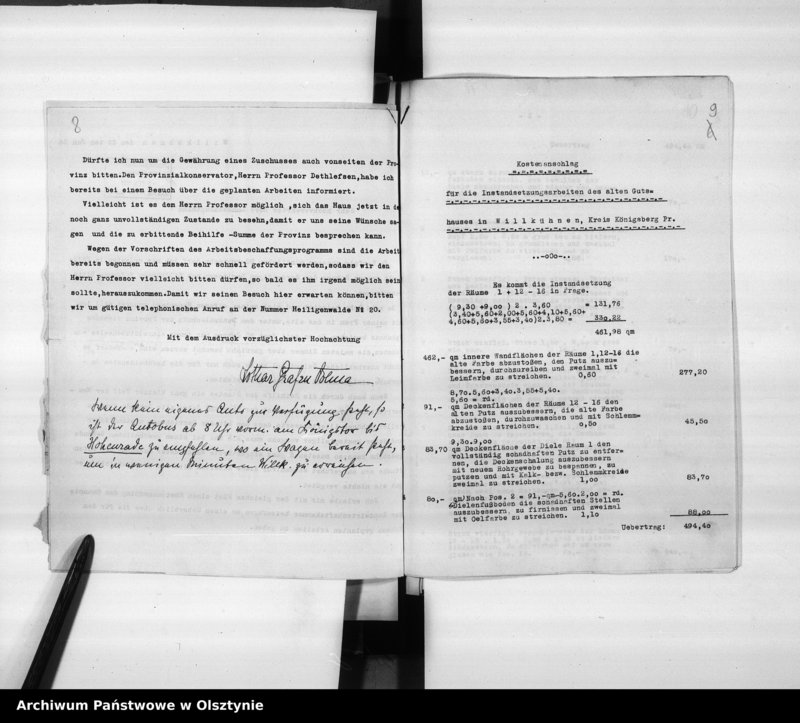 8
Dürfte ich nun um die Gewährung eines Zuschusses auch vonseiten der Pro-
vinz bitten.Den Provinzialkonservator,Herrn Professor Dethlefsen,habe ich
bereits bei einem Besuch über die geplanten Arbeiten informiert.
Vielleicht ist es dem Herrn Professor möglich ,sich das Haus jetzt in de
noch ganz unvollständigen Zustande zu besehn,damit er uns seine Wünsche sa-
gen und die zu erbittende Beihilfe -Summe der Provinz besprechen kann.
Wegen der Vorschriften des Arbeitsbeschaffungsprogramms sind die Arbeit
bereits begonnen und müssen sehr schnell gefördert werden,sodass wir den
Herrn Professor vielleicht bitten dürfen,so bald es ihm irgend möglich sein
sollte,herauszukommen.Damit wir seinen Besuch hier erwarten können,bitten
wir um gütigen telephonischen Anruf an der Nummer Heiligenwalde № 20.
Mit dem Ausdruck vorzüglichster Hochachtung
Lothar Graf zu Dohna
Wenn kein eigenes Auto zur Verfügung steht, so
ist der Autobus ab 8 Uhr vorm. am Königstor bis
Hohenrade zu empfehlen, wo ein Wagen bereit steht,
um in wenigen Minuten Willk. zu erreichen.
9
Kostenanschlag
für die Instandsetzungsarbeiten des alten Guts=
hauses in W i l l k ü h n e n, Kreis Königsberg Pr.
..-oOo-..
Es kommt die Instandsetzung
der Räume 1 + 12 - 16 in Frage.
( 9,30 +9,00 ) 2 . 3,60 = 131,76
(3,40+5,60+2,00+5,60+4,10+5,60+
4,60+5,60+3,55+3,40)2.3,80 = 330.22
461,98 qm
462,- qm innere Wandflächen der Räume 1,12-16 die
alte Farbe abzustoßen, den Putz auszu=
bessern, durchzureiben und zweimal mit
Leimfarbe zu streichen. 0,60 277,20
8,70.5,60+3,40.3,55+5,40.
5,60 = rd.
91,- qm Deckenflächen der Räume 12 - 16 den
alten Putz auszubessern, die alte Farbe
abzustoßen, durchzuwaschen und mit Schlemm=
kreide zu streichen. 0,50 45,50
9,30.9,00
83,70 qm Deckenfläche der Diele Raum 1 den
vollständig schadhaften Putz zu entfer=
nen, die Deckenschalung auszubessern
mit neuem Rohrgewebe zu bespannen, zu
putzen und mit Kalk- bezw. Schlemmkreide
zweimal zu streichen. 1,00 83,70
80,- qm Nach Pos. 2 = 91,-qm-5,60.2,00 = rd.
Dielenfußboden die schadhaften Stellen
auszubessern, zu firnissen und zweimal
mit Oelfarbe zu streichen. 1,10 88,00
Uebertrag: 494,40
Archiwum Państwowe w Olsztynie